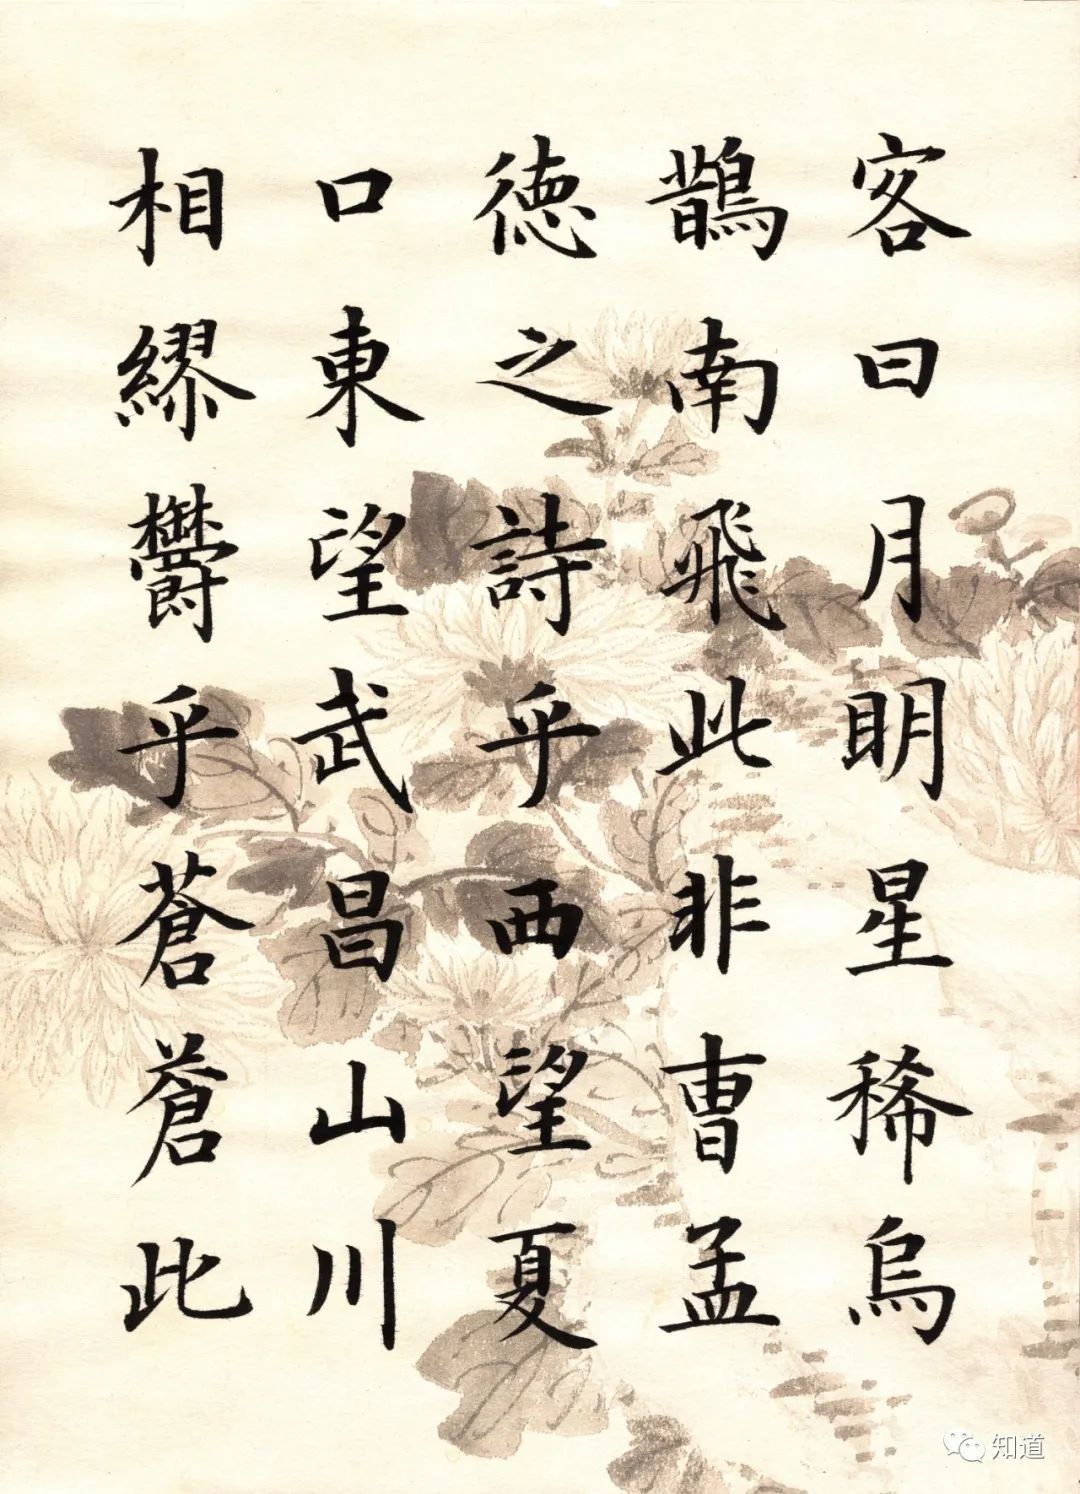 客曰月明星稀烏
鵲南飛此非曹孟
德之詩乎西望夏
口東望武昌山川
相繆鬱乎蒼蒼此
知道